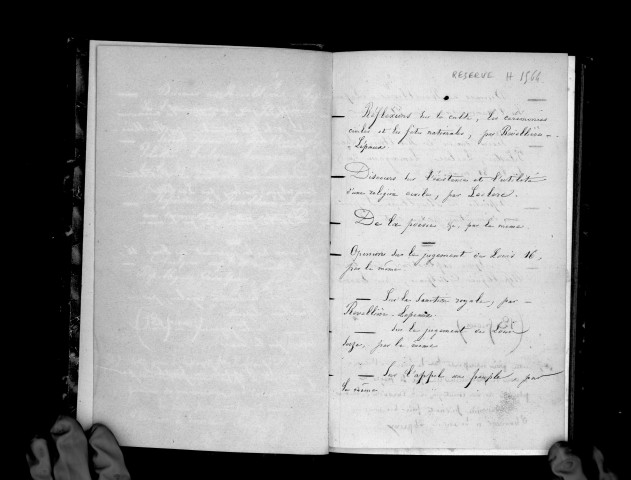 RESERVE H 1566
Réflexions sur le culte, les cérémonies
civiles et les fêtes nationales, par Revellière-
-Lepeaux
Discours sur l'existence et l'utilité
d'une religion civile, par Leclerc.
De la poésie &a. par le même.
Opinion sur le jugement de Louis 16,
par le même
— Sur la sanction royale, par
Revellière-Lepeaux
— sur le jugement de Louis
seize, par le même
— Sur l'appel au peuple, par
le même